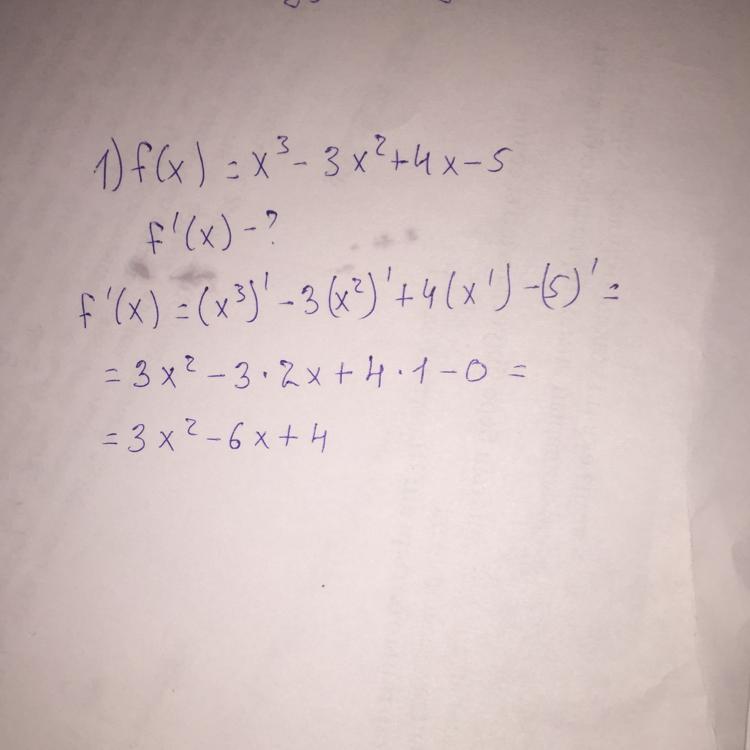 1) f(x) = x³ - 3x² + 4x - 5
f'(x) - ?
f'(x) = (x³)' - 3(x²)' + 4(x') - (5)' =
= 3x² - 3·2x + 4·1 - 0 =
= 3x² - 6x + 4